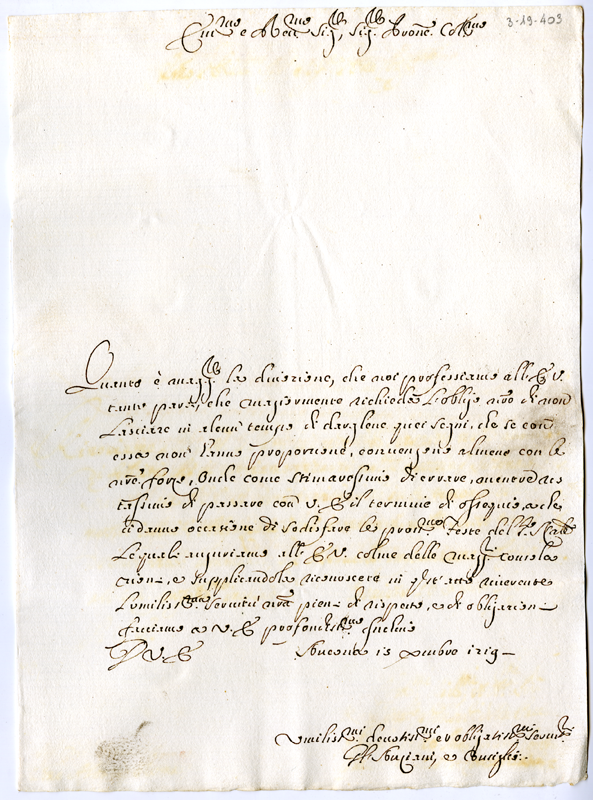 3-19-403
Em.mo e Rev.mo Sig.r, Sig.r Prone. Col.mo
Quanto è magg.re la divozione, che noi professiamo all' E. V.
tanto pare, che maggiormente richieda l'obligo nro di non
lasciare in alcun tempo di dargliene quei segni, che se con
essa non hanno proporzione, convengono almeno con le
nre forze, Onde come stimaressimo di errare, mentre
tassimo di passare con V. E. il termine di ossequio, a che
ci danno occasione di sodisfare le pross.me Feste del S. Natale
le quali auguriamo all' E. V. colme delle magg.ri consola
zioni, e supplicandola riconoscere in q.sto atto riverente
l'umiliss.ma servitù nra piena di rispetto, e di obligazione
facciamo a V. E. profondiss.mo Inchino
D. V. E. 15 Xmbre 1719
Umiliss.mi devotiss.mi et obligatiss.mi Serv.ri
Gl' Anziani, e Consiglio